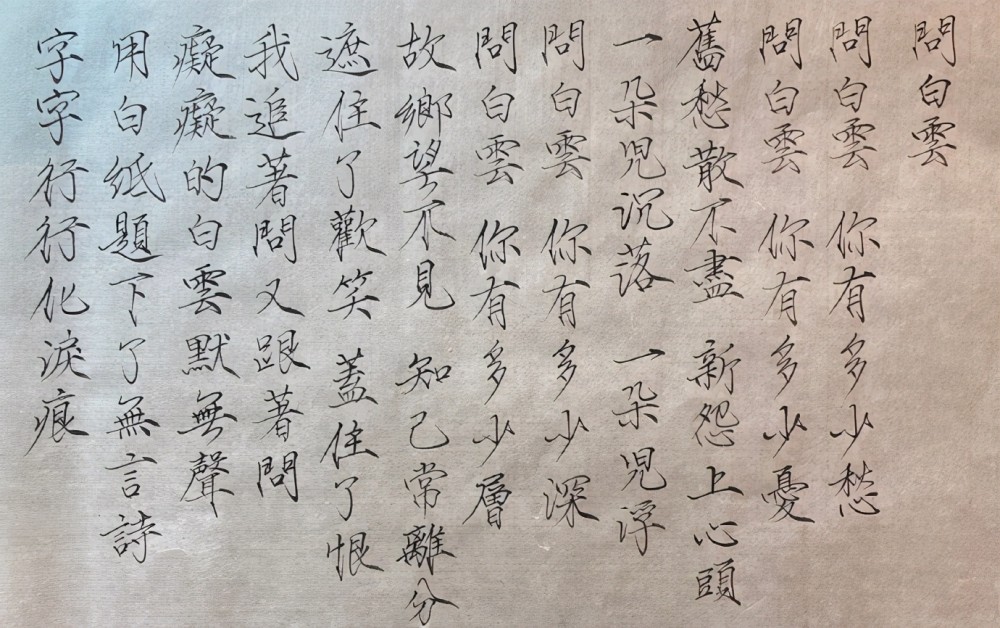 問白雲
問白雲 你有多少愁
問白雲 你有多少憂
舊愁散不盡 新怨上心頭
一朵兒沉落 一朵兒浮
問白雲 你有多少深
問白雲 你有多少層
故鄉望不見 知己常離分
遮住了歡笑 蓋住了恨
我追著問又跟著問
癡癡的白雲默無聲
用白紙題下了無言詩
字字行行化淚痕